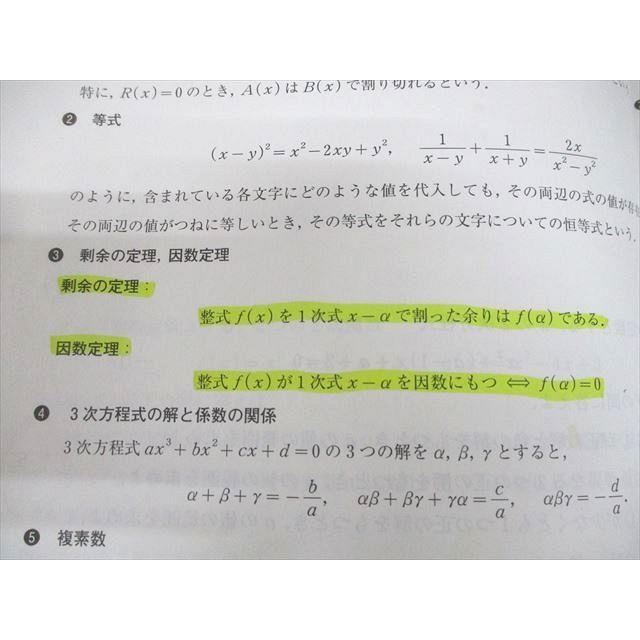 特に, R(x)=0 のとき, A(x) は B(x) で割り切れるという.
❷ 等式
(x−y)²=x²−2xy+y², 1/(x−y)+1/(x+y)=2x/(x²−y²)
のように, 含まれている各文字にどのような値を代入しても, その両辺の式の値が
その両辺の値がつねに等しいとき, その等式をそれらの文字についての恒等式という.
❸ 剰余の定理, 因数定理
剰余の定理：
整式 f(x) を1次式 x−α で割った余りは f(α) である.
因数定理：
整式 f(x) が1次式 x−α を因数にもつ ⟺ f(α)=0
❹ 3次方程式の解と係数の関係
3次方程式 ax³+bx²+cx+d=0 の3つの解を α, β, γ とすると,
α+β+γ=−b/a, αβ+βγ+γα=c/a, αβγ=−d/a.
❺ 複素数